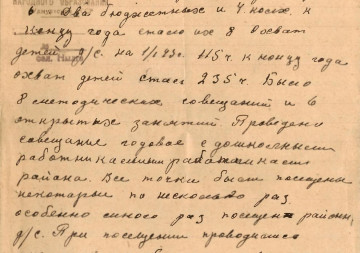 6 Два бюджетных и 4 колх. к
концу года стало их 8 охват
детей д/с. на 1/I 23г. 115 ч к концу года
охват детей стал 235 ч. Было
8 методических совещаний и 6
открытых занятий Проведено
совещание годовое с дошкольными
работниками работниками
района. Все точки были посещены
некоторые по несколько раз
особенно много раз посещен район.
д/с. При посещении проводилась